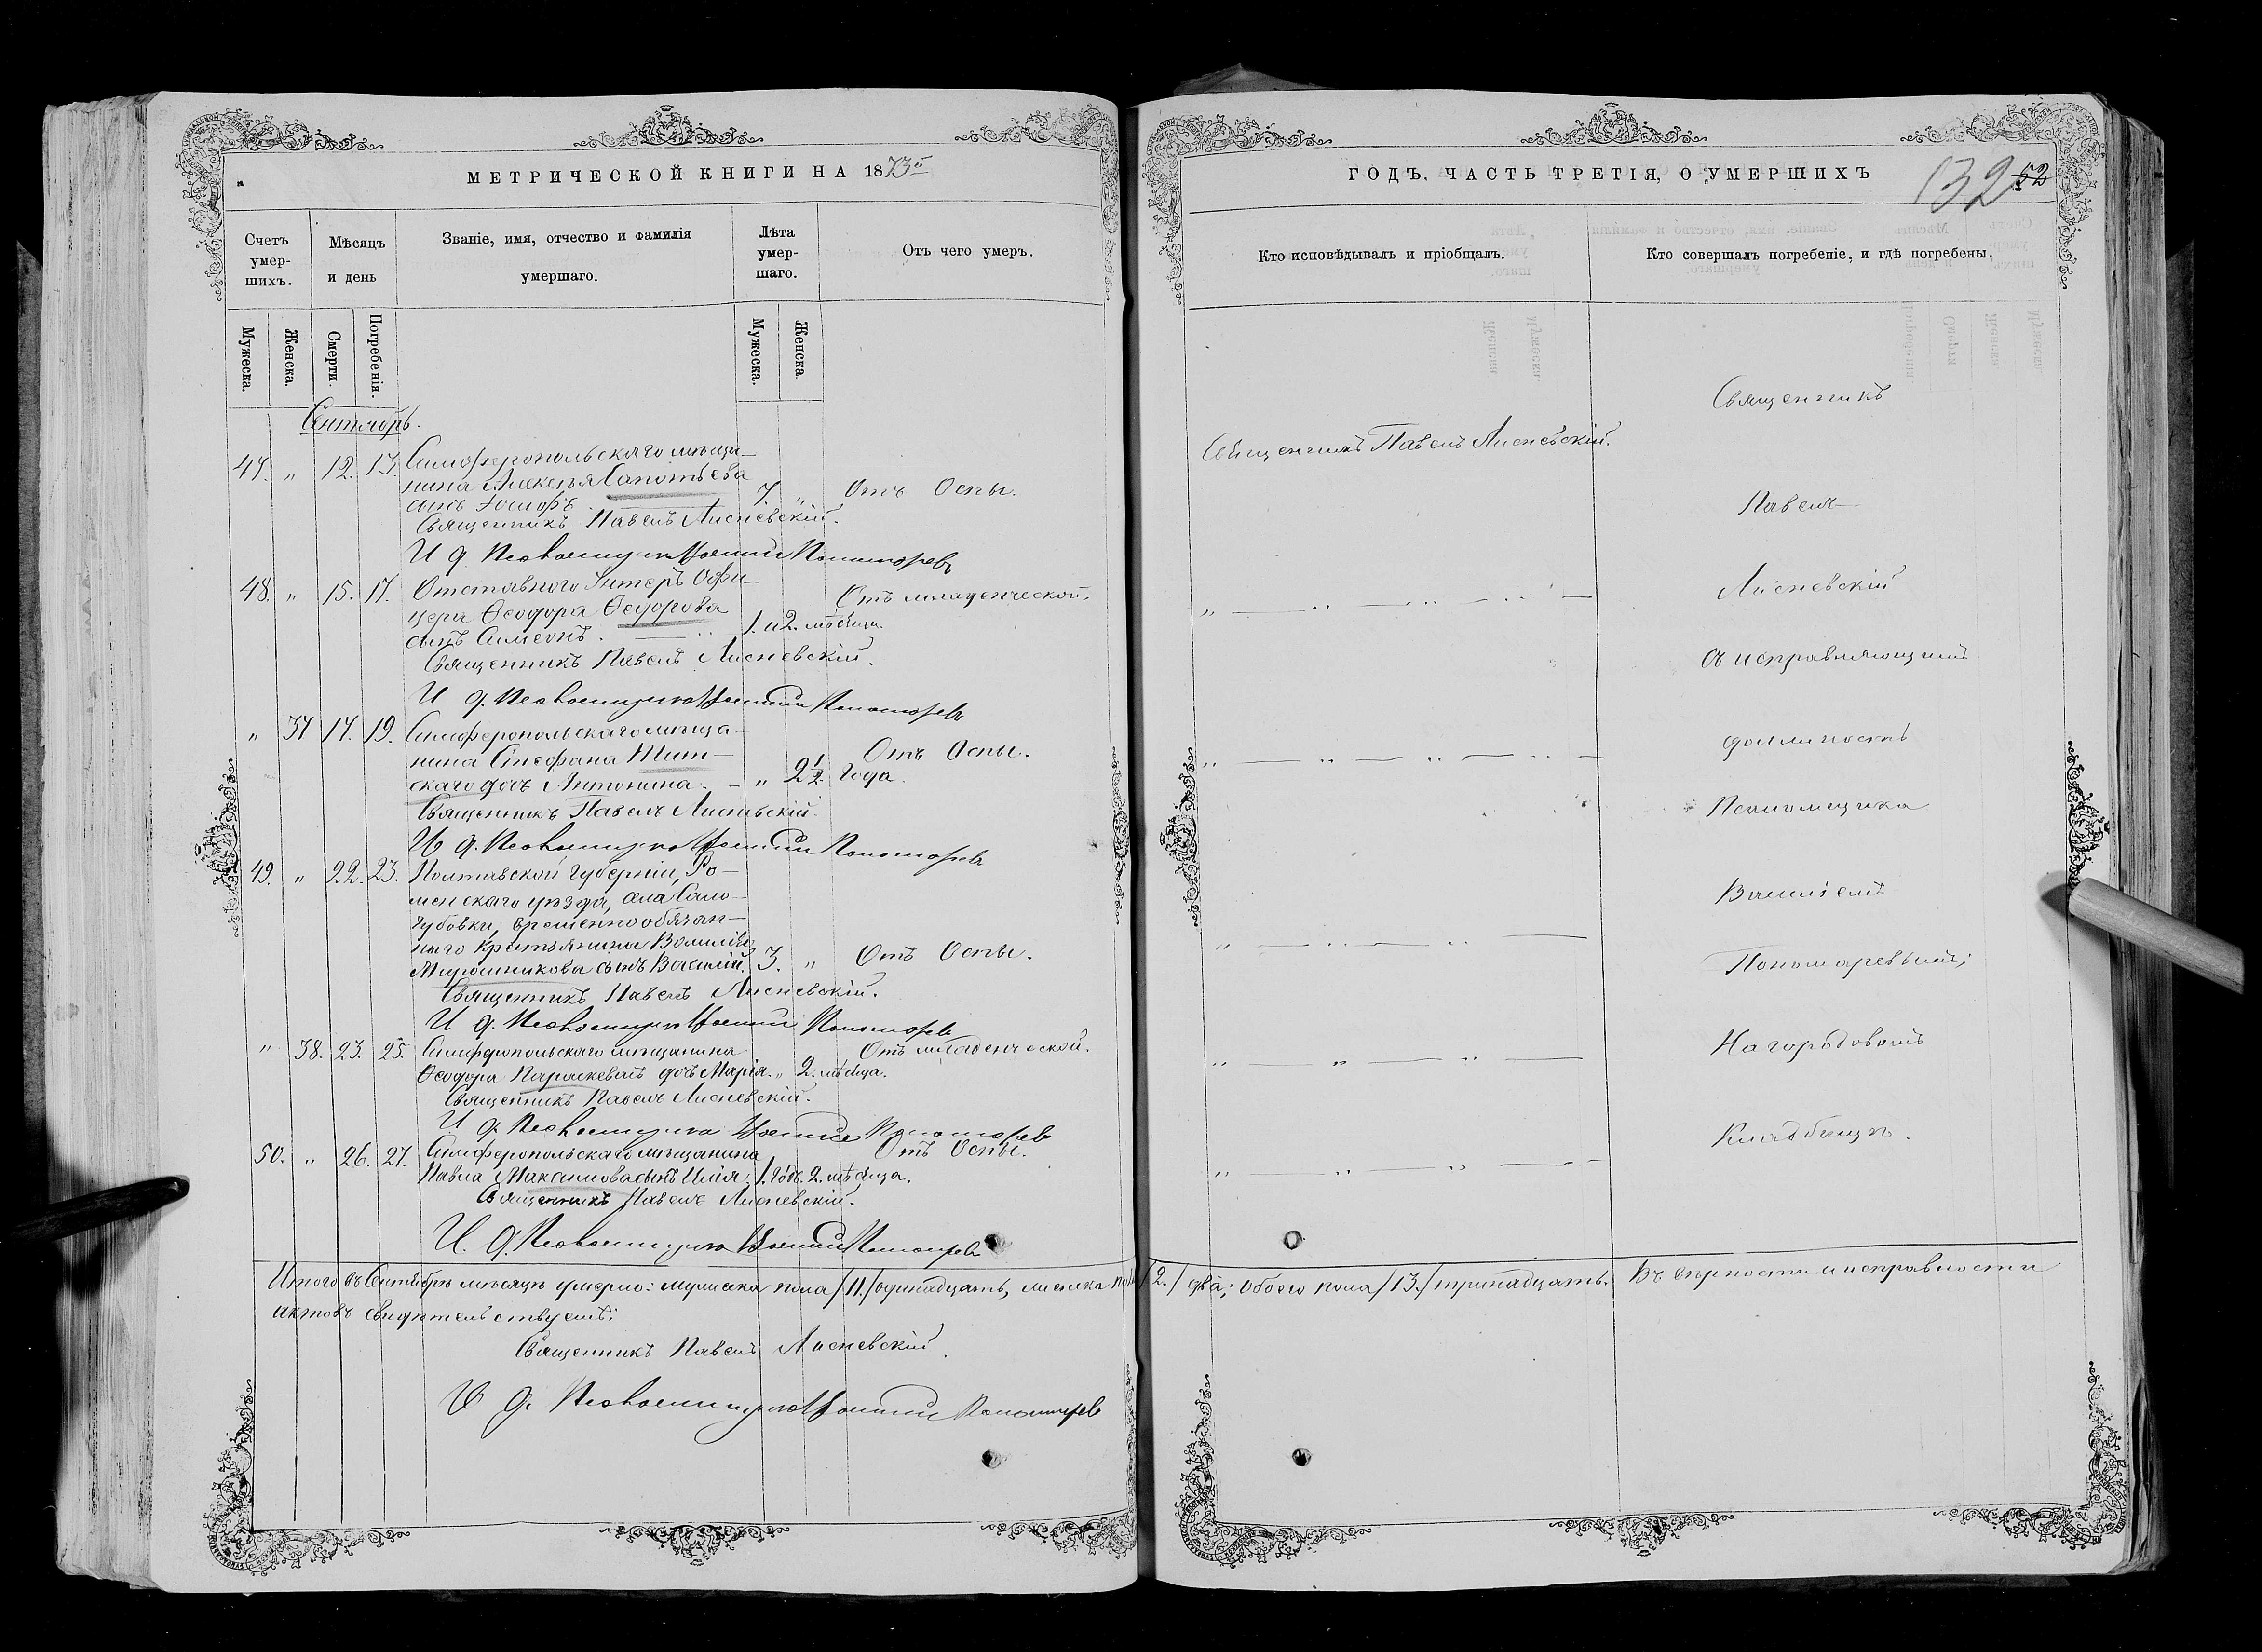 МЕТРИЧЕСКОЙ КНИГИ НА 1873й
Счетъ умершихъ.
Мѣсяцъ и день
Званіе, имя, отчество и фамилія умершаго.
Лѣта умершаго.
Отъ чего умеръ.
Мужеска.
Женска.
Смерти.
Погребенія.
Мужеска.
Женска.
Сентябрь.
47. „ 12. 13. Симферопольскаго мѣща-
нина Алексѣя Сапотьева
сынъ Іосифъ 7. „ Отъ Оспы.
Священникъ Павелъ Лисневскій.
И д. Псаломщика Василій Пономаревъ
48. „ 15. 17. Отставнаго Унтеръ Офи-
цера Ѳеодора Ѳедорова Отъ младенческой.
сынъ Симеонъ. 1. и 2. мѣсяца.
Священникъ Павелъ Лисневскій.
И д. Псаломщика Василій Пономаревъ
„ 37 17. 19. Симферопольскаго мѣща-
нина Стефана Шит- Отъ Оспы.
скаго дочь Антонина. „ 2 1/2. года.
Священникъ Павелъ Лисневскій.
И д. Псаломщика Василій Пономаревъ
49. „ 22. 23. Полтавской Губерніи, Ро-
менскаго уѣзда, села Само-
губовки, временнообязан-
наго крестьянина Василія
Мирошникова сынъ Василій. 3. „ Отъ Оспы.
Священникъ Павелъ Лисневскій.
И д. Псаломщика Василій Пономаревъ
„ 38. 23. 25. Симферопольскаго мѣщанина Отъ младенческой.
Ѳеодора дочь Марія. „ 2. мѣсяца.
Священникъ Павелъ Лисневскій.
И д. Псаломщика Василій Пономаревъ
50. „ 26. 27. Симферопольскаго мѣщанина Отъ Оспы.
Павла Максимова сынъ Илія. 1. годъ. 2. мѣсяца.
Священникъ Павелъ Лисневскій.
И. д. Псаломщика Василій Пономаревъ
Итого въ Сентябрѣ мѣсяцѣ умерло: мужеска пола /11./ одинадцать, женска пола /2./ два; обоего пола /13./ тринадцать. Въ вѣрности и исправности
актовъ свидѣтельствуемъ:
Священникъ Павелъ Лисневскій.
И д. Псаломщика Василій Пономаревъ
ГОДЪ, ЧАСТЬ ТРЕТІЯ, О УМЕРШИХЪ
132 52
Кто исповѣдывалъ и пріобщалъ.
Кто совершалъ погребеніе, и гдѣ погребены.
Священникъ Павелъ Лисневскій.
Священникъ
Павелъ
Лисневскій
съ исправляющимъ
должность
Псаломщика
Василіемъ
Пономаревымъ;
На городовомъ
Кладбищѣ.